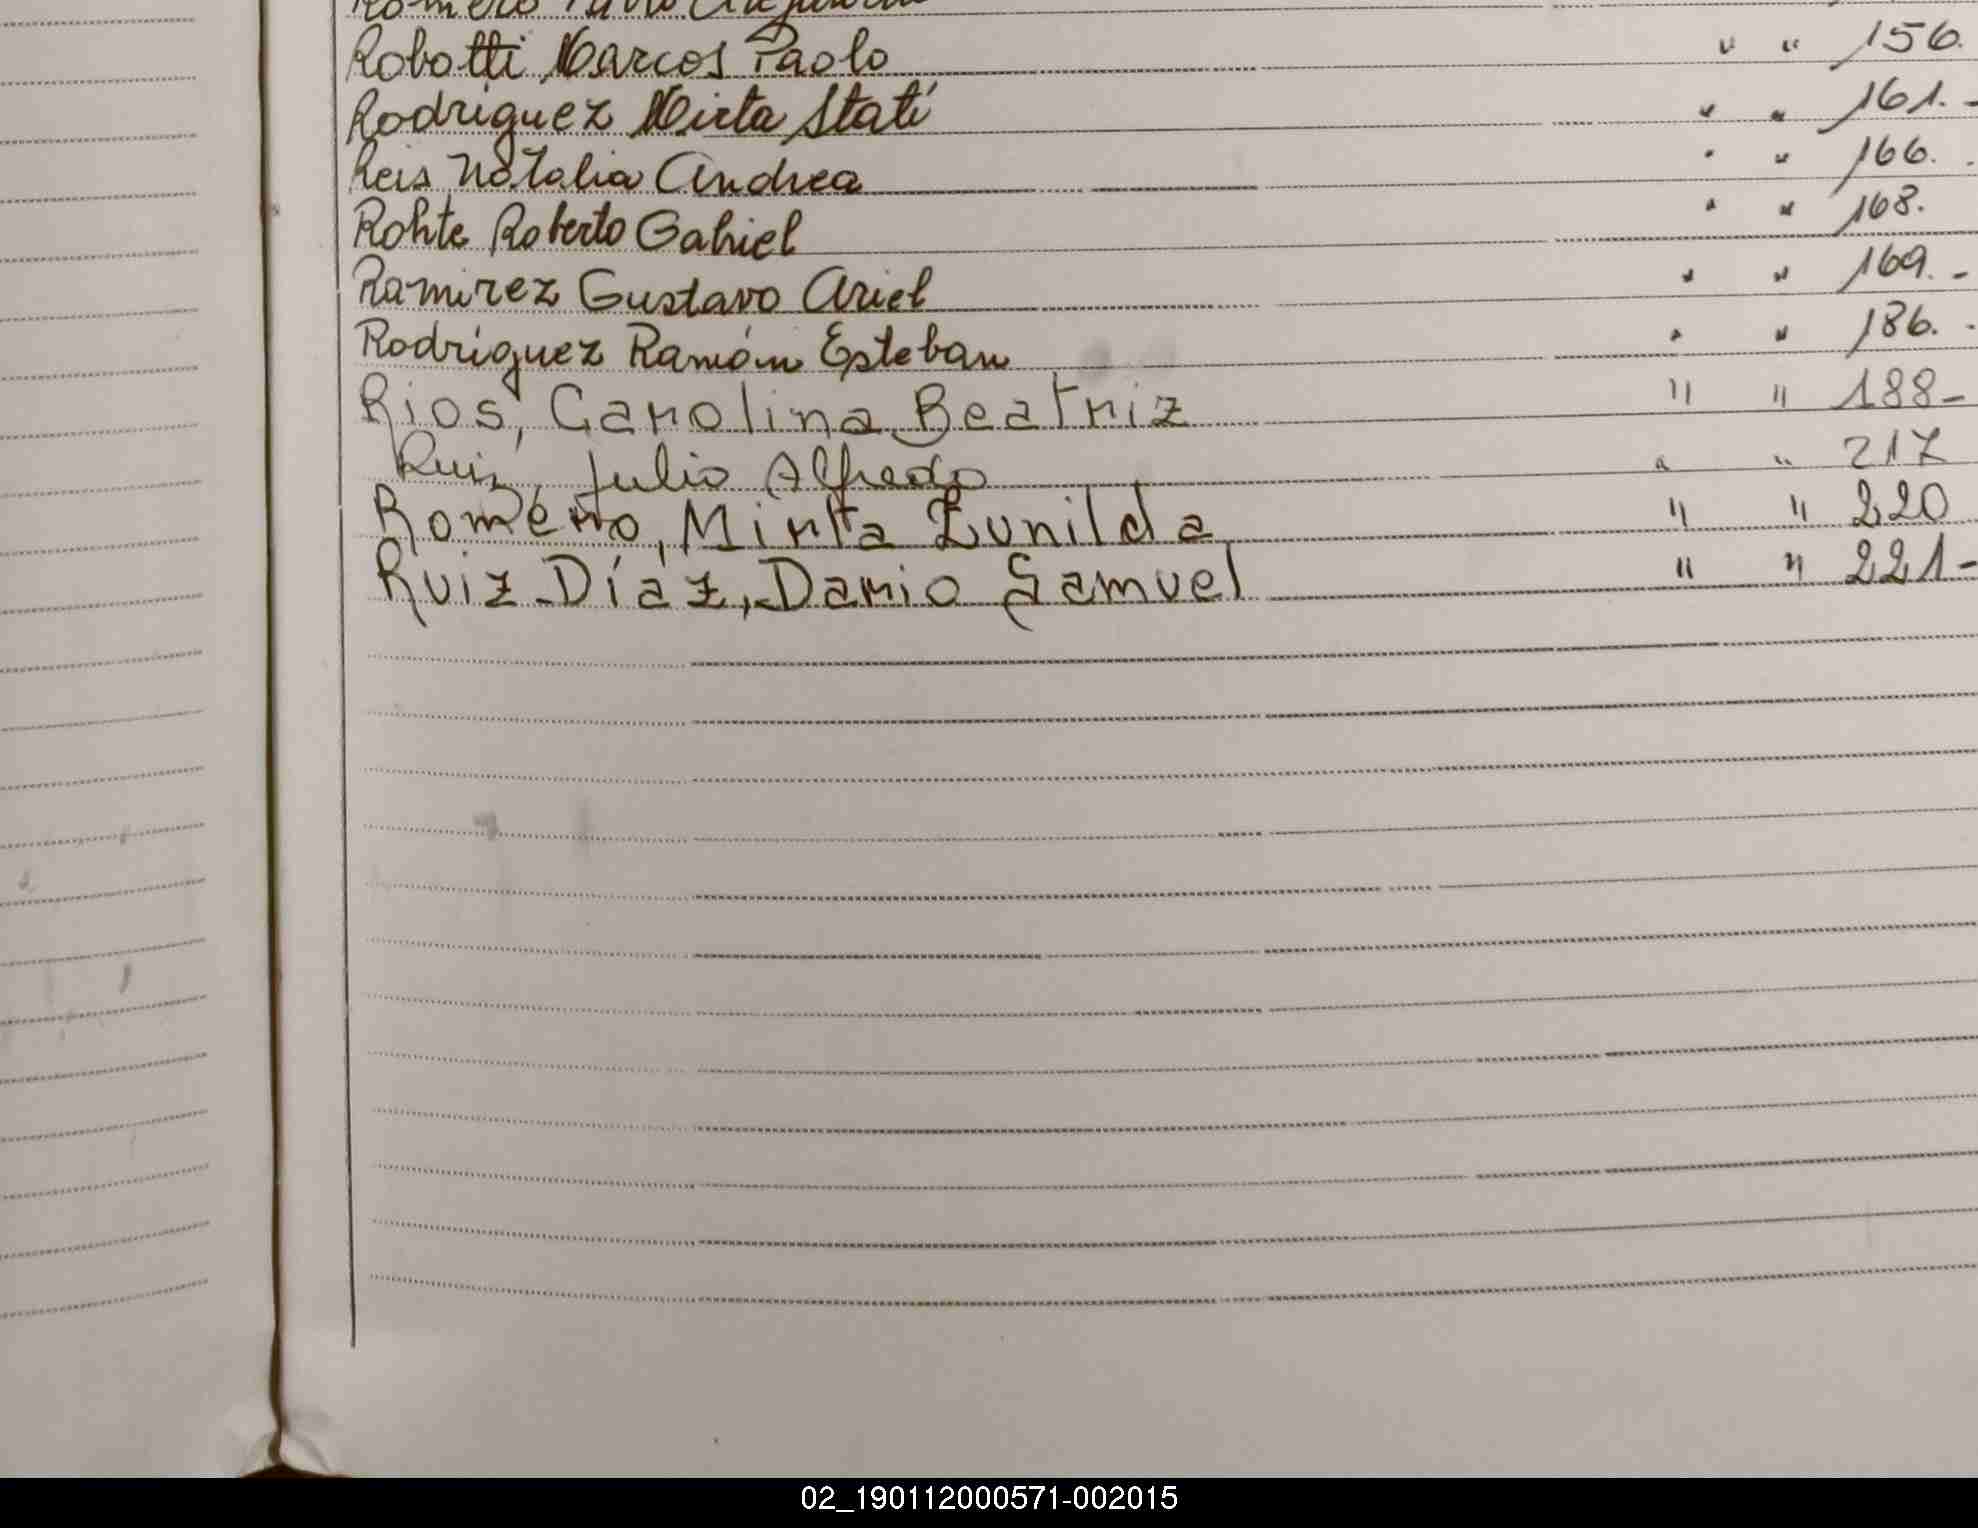 Romero Pablo Alejandro
Robotti Marcos Paolo " " 156.
Rodriguez Mirta Statí " " 161.-
Reis Natalia Andrea " " 166.
Rohte Roberto Gabriel " " 168.
Ramirez Gustavo Ariel " " 169.-
Rodríguez Ramón Esteban " " 186.-
Rios, Carolina Beatriz " " 188-
Ruiz, Julio Alfredo " " 217
Romero, Mirta Zunilda " " 220
Ruiz Díaz, Dario Samuel " " 221-
02_190112000571-002015